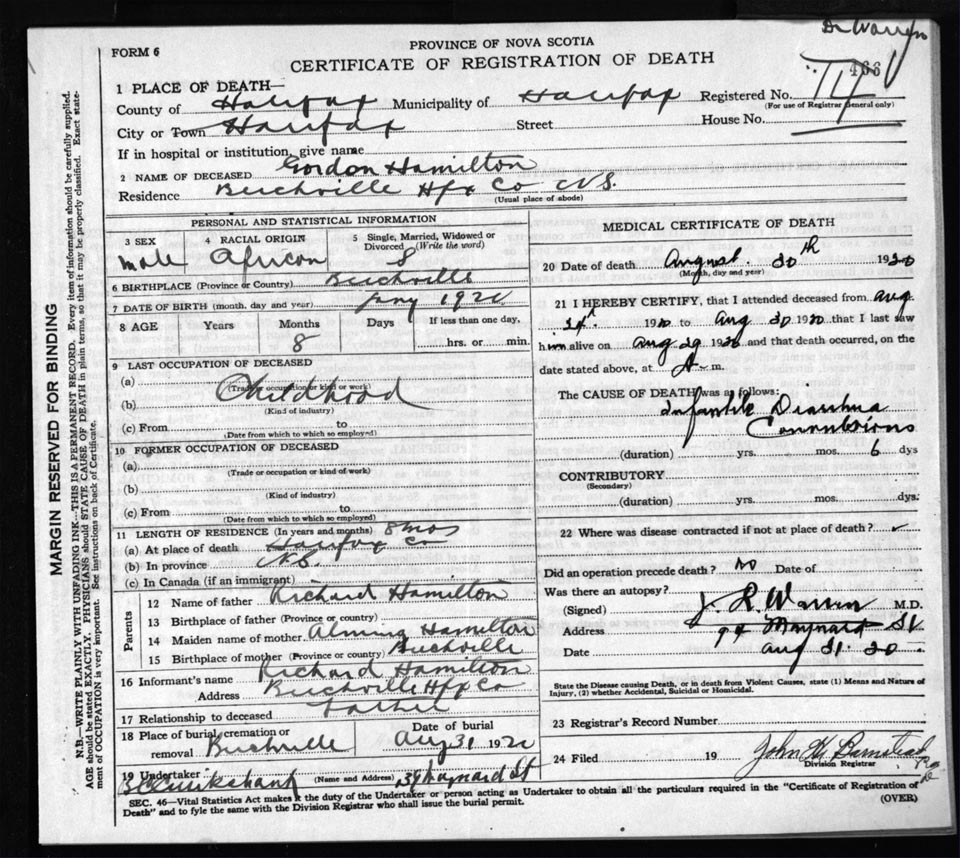 Dr Warren
FORM 6
PROVINCE OF NOVA SCOTIA
CERTIFICATE OF REGISTRATION OF DEATH
466
1 PLACE OF DEATH—
County of Halifax Municipality of Halifax Registered No.
(For use of Registrar General only)
City or Town Halifax Street House No.
If in hospital or institution, give name
2 NAME OF DECEASED Gordon Hamilton
Residence Beechville Hfx Co N.S.
(Usual place of abode)
PERSONAL AND STATISTICAL INFORMATION
3 SEX
male
4 RACIAL ORIGIN
African
5 Single, Married, Widowed or Divorced (Write the word)
S
6 BIRTHPLACE (Province or Country) Beechville
7 DATE OF BIRTH (month, day and year) Jany 1920
8 AGE Years Months Days If less than one day,
8 hrs. or min.
9 LAST OCCUPATION OF DECEASED
(a)
(Trade or occupation or kind of work)
(b) Childhood
(Kind of industry)
(c) From to
(Date from which to which so employed)
10 FORMER OCCUPATION OF DECEASED
(a)
(Trade or occupation or kind of work)
(b)
(Kind of industry)
(c) From to
(Date from which to which so employed)
11 LENGTH OF RESIDENCE (In years and months) 8 mos
(a) At place of death Halifax Co
(b) In province N.S.
(c) In Canada (if an immigrant)
Parents
12 Name of father Richard Hamilton
13 Birthplace of father (Province or country)
14 Maiden name of mother Hamilton
15 Birthplace of mother (Province or country) Beechville
16 Informant's name Richard Hamilton
Address Beechville Hfx Co
17 Relationship to deceased Father
18 Place of burial, cremation or removal Beechville
Date of burial
Aug 31 1920
19 Undertaker (Name and Address) Maynard St
MEDICAL CERTIFICATE OF DEATH
20 Date of death August 30th 1920
(Month, day and year)
21 I HEREBY CERTIFY, that I attended deceased from Aug
1920 to Aug 30 1920 that I last saw
him alive on Aug 29 1920 and that death occurred, on the
date stated above, at A m.
The CAUSE OF DEATH was as follows:
Infantile Diarrhea
Convulsions
(duration) yrs. mos. 6 dys
CONTRIBUTORY
(Secondary)
(duration) yrs. mos. dys.
22 Where was disease contracted if not at place of death? ✓
Did an operation precede death? No Date of
Was there an autopsy?
(Signed) J. L. Warren M.D.
Address 94 Maynard St
Date Aug 31. 20.
State the Disease causing Death, or in death from Violent Causes, state (1) Means and Nature of
Injury, (2) whether Accidental, Suicidal or Homicidal.
23 Registrar's Record Number
24 Filed 19 John H Barnstead
Division Registrar
SEC. 46—Vital Statistics Act makes it the duty of the Undertaker or person acting as Undertaker to obtain all the particulars required in the "Certificate of Registration of
Death" and to fyle the same with the Division Registrar who shall issue the burial permit.
(OVER)
MARGIN RESERVED FOR BINDING
N.B.—WRITE PLAINLY WITH UNFADING INK—THIS IS A PERMANENT RECORD. Every item of information should be carefully supplied.
AGE should be stated EXACTLY. PHYSICIANS should STATE CAUSE OF DEATH in plain terms, so that it may be properly classified. Exact state-
ment of OCCUPATION is very important. See instructions on back of Certificate.